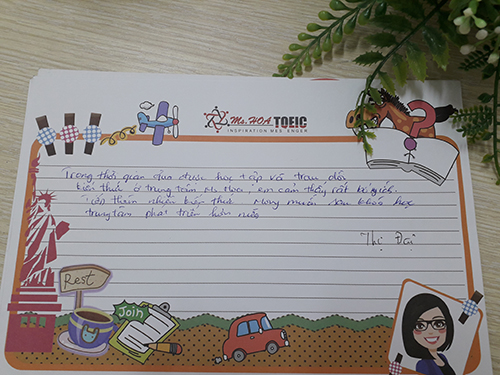 Ms.HOA TOEIC
INSPIRATION MESSENGER
Trong thời gian qua được học tập và trau dồi
kiến thức ở trung tâm Ms Hoa, em cảm thấy rất bổ ích.
thêm nhiều kiến thức Mong muốn sau khóa học
trung tâm phát triển hơn nữa
Thị Đại
Rest
Join